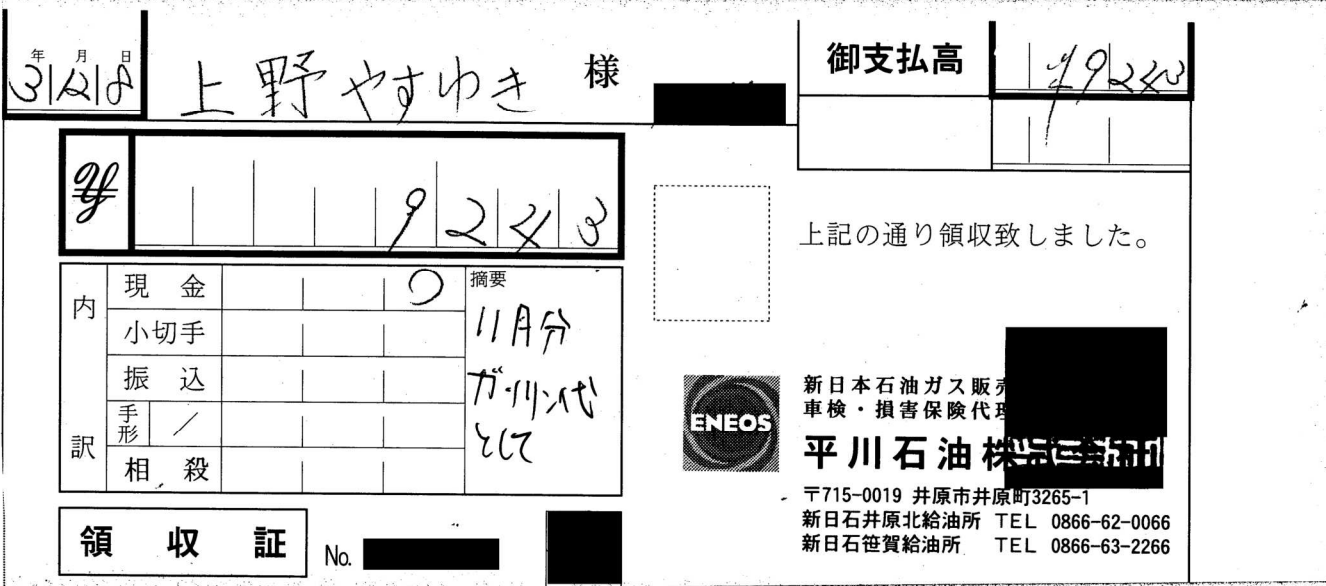 年 月 日
31 12 8
上野やすゆき 様
御支払高
¥9243
¥ 9243
上記の通り領収致しました。
内訳
現金 ○
小切手
振込
手形 /
相殺
摘要
11月分
ガソリン代
として
ENEOS
新日本石油ガス販売
車検・損害保険代理
平川石油株式会社
〒715-0019 井原市井原町3265-1
新日石井原北給油所 TEL 0866-62-0066
新日石笹賀給油所 TEL 0866-63-2266
領収証
No.